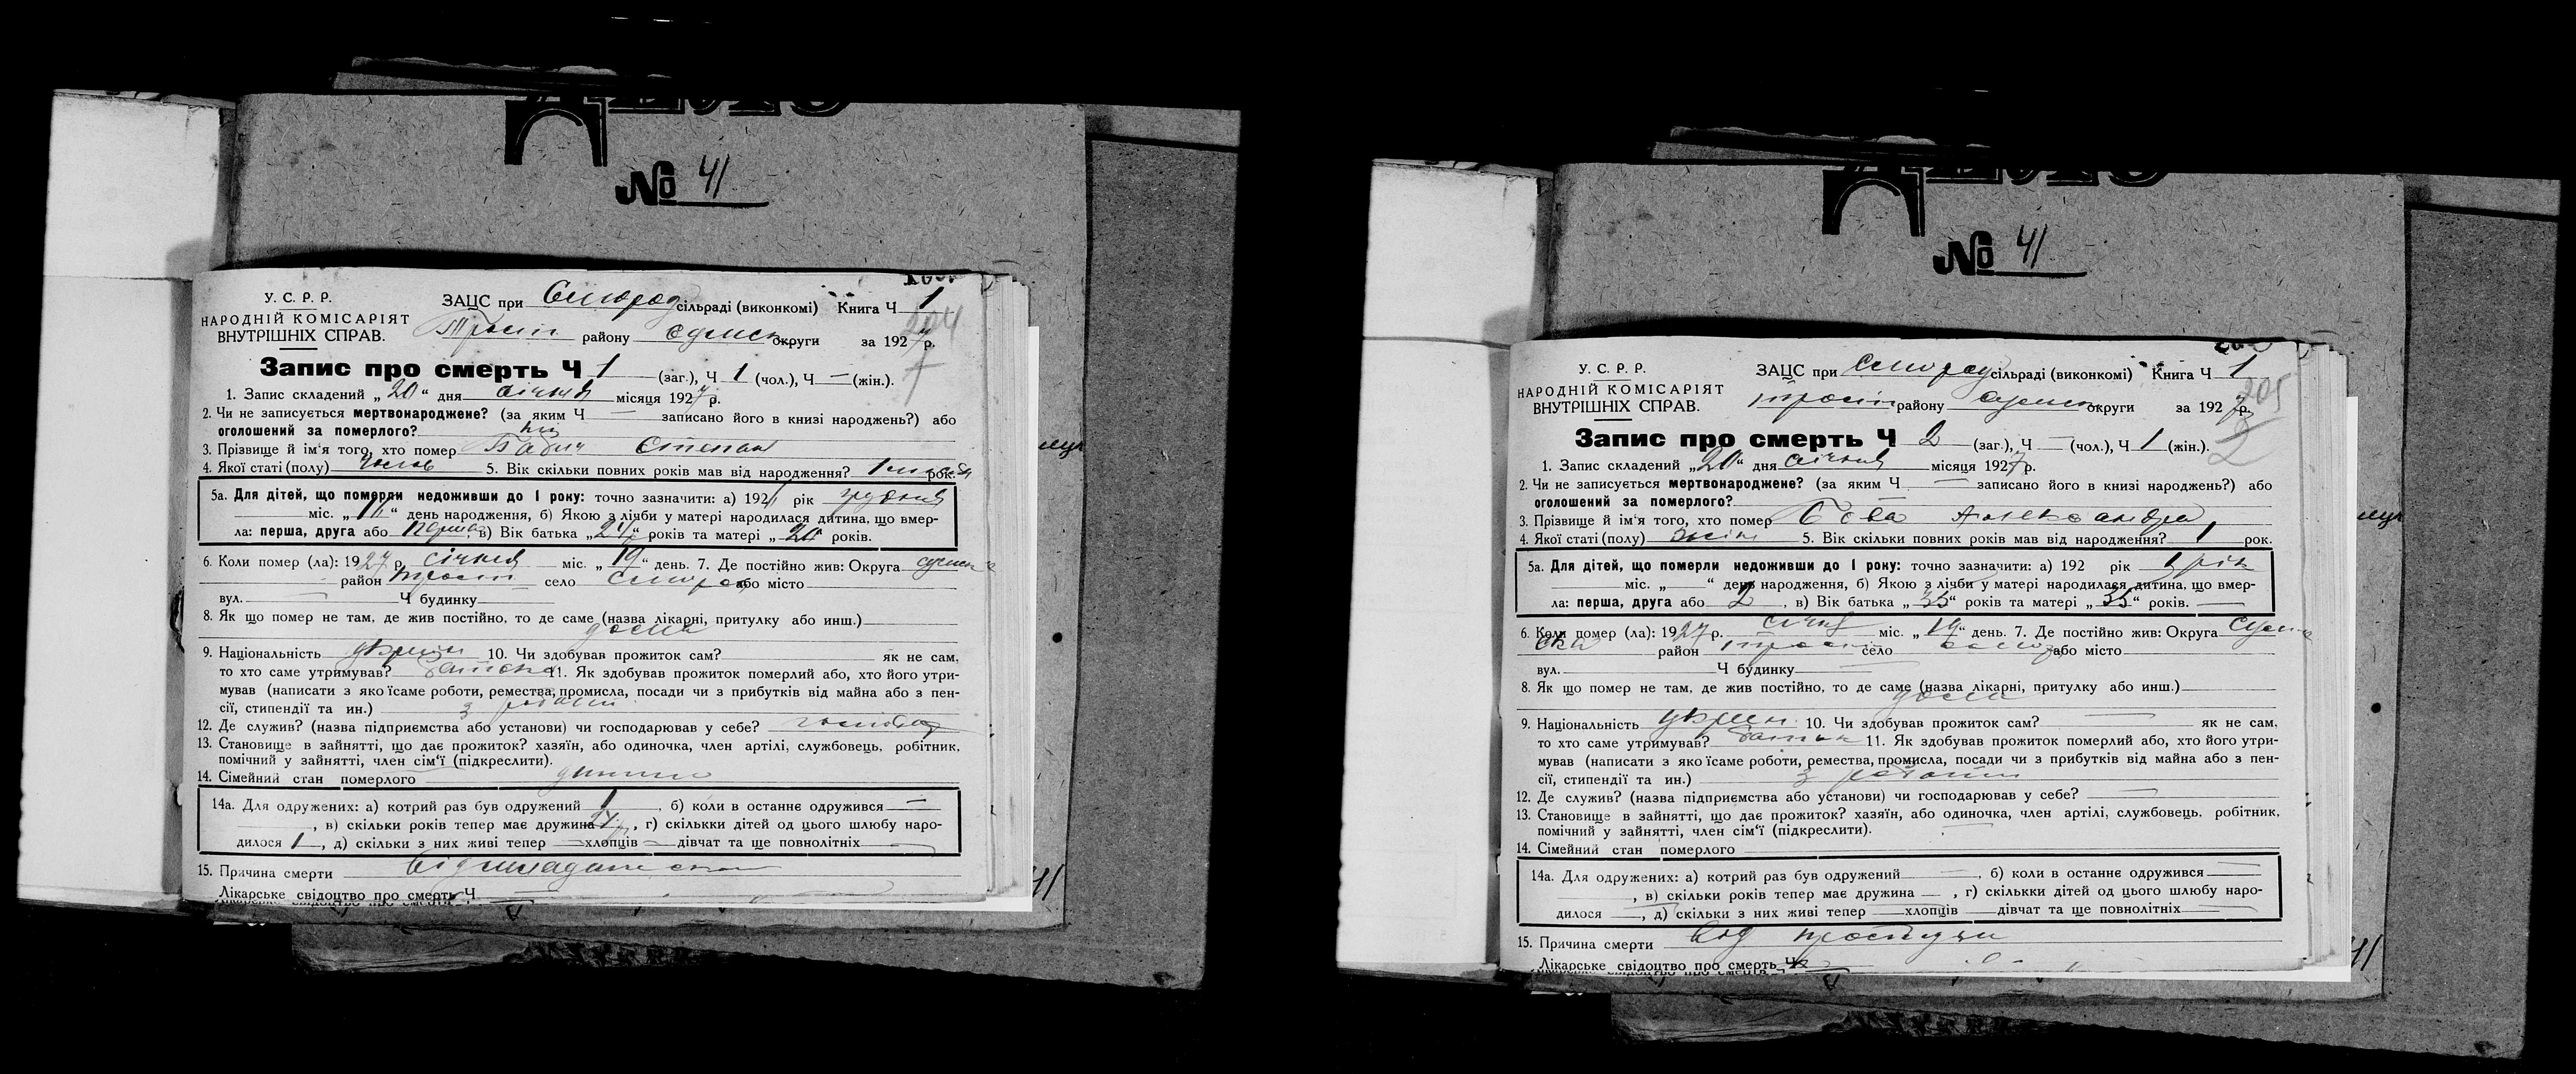 № 41
У. С. Р. Р.
НАРОДНІЙ КОМІСАРІЯТ
ВНУТРІШНІХ СПРАВ.
ЗАЦС при сільраді (виконкомі) Книга Ч 1
204
району округи за 1927 р.
Запис про смерть Ч 1 (заг.), Ч 1 (чол.), Ч — (жін.).
1. Запис складений „20“ дня січня місяця 1927 р.
2. Чи не записується мертвонароджене? (за яким Ч — записано його в книзі народжень?) або
оголошений за померлого? ні
3. Прізвище й ім'я того, хто помер Бабич Степан
4. Якої статі (полу) 5. Вік скільки повних років мав від народження? рок.
5а. Для дітей, що померли недоживши до 1 року: точно зазначити: а) 192 рік грудня
міс. „ “ день народження, б) Якою з лічби у матері народилася дитина, що вмер-
ла: перша, друга або перша, в) Вік батька „ “ років та матері „20“ років.
6. Коли помер (ла): 1927 р. січня міс. „19“ день. 7. Де постійно жив: Округа
район село або місто
вул. — Ч будинку —
8. Як що помер не там, де жив постійно, то де саме (назва лікарні, притулку або инш.)
дома
9. Національність 10. Чи здобував прожиток сам? як не сам,
то хто саме утримував? 11. Як здобував прожиток померлий або, хто його утри-
мував (написати з якої саме роботи, ремества, промисла, посади чи з прибутків від майна або з пен-
сії, стипендії та ин.) з роботи
12. Де служив? (назва підприємства або установи) чи господарював у себе?
13. Становище в зайнятті, що дає прожиток? хазяїн, або одиночка, член артілі, службовець, робітник,
помічний у зайнятті, член сім'ї (підкреслити).
14. Сімейний стан померлого
14а. Для одружених: а) котрий раз був одружений 1, б) коли в останнє одружився —
, в) скільки років тепер має дружина , г) скількки дітей од цього шлюбу наро-
дилося 1, д) скільки з них живі тепер — хлопців — дівчат та ще повнолітніх —
15. Причина смерти
Лікарське свідоцтво про смерть Ч —
№ 41
У. С. Р. Р.
НАРОДНІЙ КОМІСАРІЯТ
ВНУТРІШНІХ СПРАВ.
ЗАЦС при сільраді (виконкомі) Книга Ч 1
205
району округи за 1927 р.
2
Запис про смерть Ч 2 (заг.), Ч — (чол.), Ч 1 (жін.).
1. Запис складений „20“ дня січня місяця 1927 р.
2. Чи не записується мертвонароджене? (за яким Ч — записано його в книзі народжень?) або
оголошений за померлого? —
3. Прізвище й ім'я того, хто помер Александра
4. Якої статі (полу) 5. Вік скільки повних років мав від народження? 1 рок.
5а. Для дітей, що померли недоживши до 1 року: точно зазначити: а) 192 рік 1 рік
міс. „—“ день народження, б) Якою з лічби у матері народилася дитина, що вмер-
ла: перша, друга або 2, в) Вік батька „35“ років та матері „35“ років. —
6. Коли помер (ла): 1927 р. міс. „19“ день. 7. Де постійно жив: Округа
район село або місто
вул. Ч будинку —
8. Як що помер не там, де жив постійно, то де саме (назва лікарні, притулку або инш.)
дома
9. Національність 10. Чи здобував прожиток сам? — як не сам,
то хто саме утримував? 11. Як здобував прожиток померлий або, хто його утри-
мував (написати з якої саме роботи, ремества, промисла, посади чи з прибутків від майна або з пен-
сії, стипендії та ин.) з роботи
12. Де служив? (назва підприємства або установи) чи господарював у себе? —
13. Становище в зайнятті, що дає прожиток? хазяїн, або одиночка, член артілі, службовець, робітник,
помічний у зайнятті, член сім'ї (підкреслити).
14. Сімейний стан померлого
14а. Для одружених: а) котрий раз був одружений —, б) коли в останнє одружився —
, в) скільки років тепер має дружина —, г) скількки дітей од цього шлюбу наро-
дилося —, д) скільки з них живі тепер — хлопців — дівчат та ще повнолітніх —
15. Причина смерти від простуди
Лікарське свідоцтво про смерть Ч